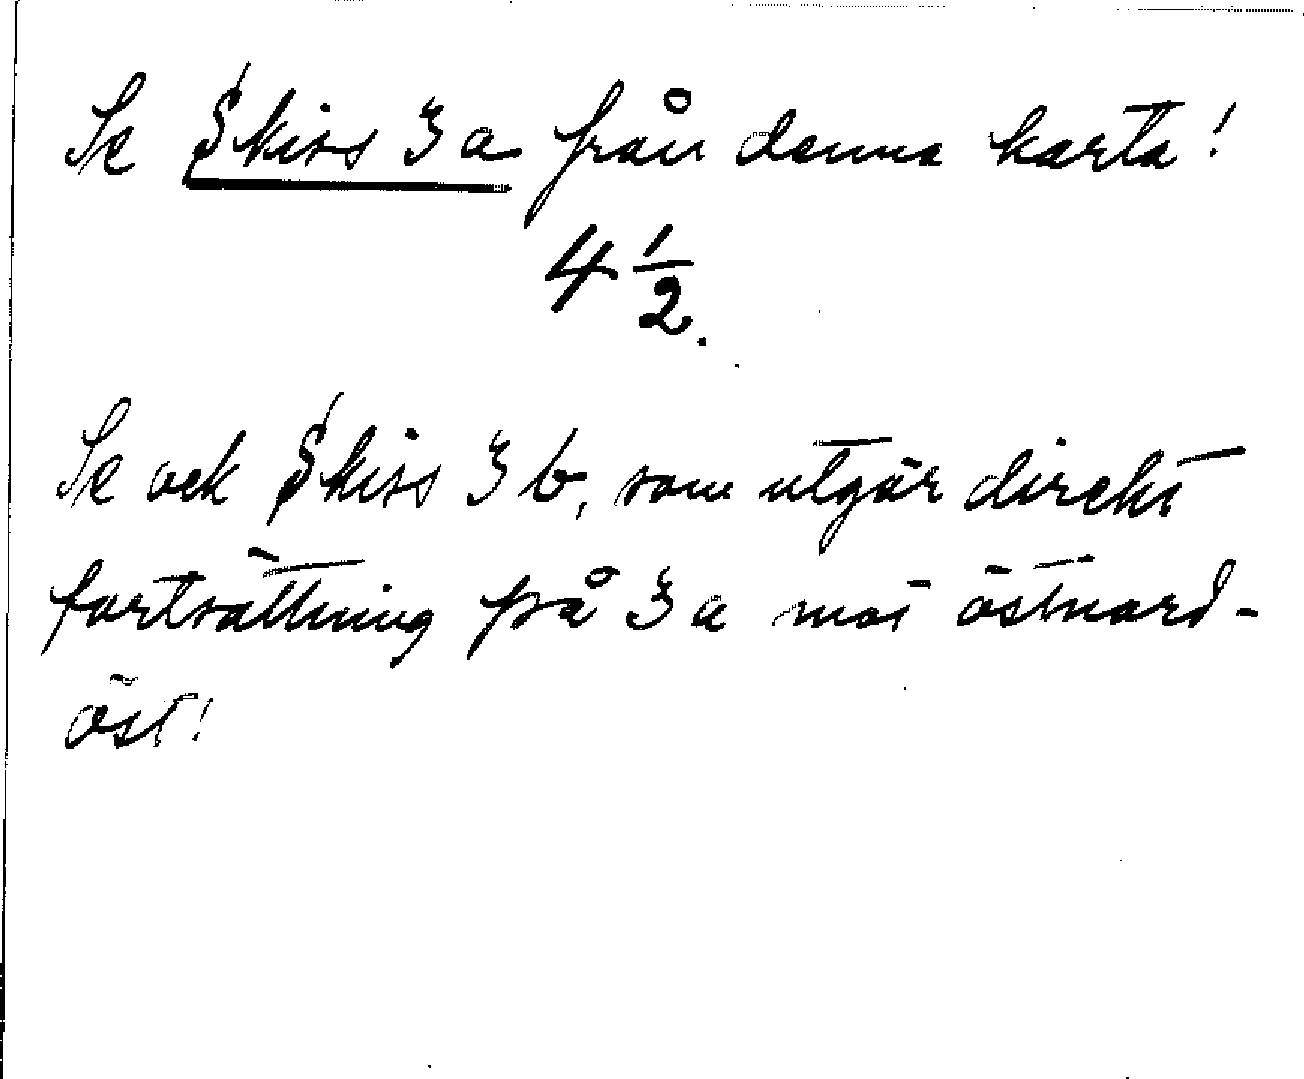 Se Skiss 3a från denna karta!
4 1/2.
Se ock Skiss 3b, som utgör direkt
fortsättning på 3a mot östnord-
öst!